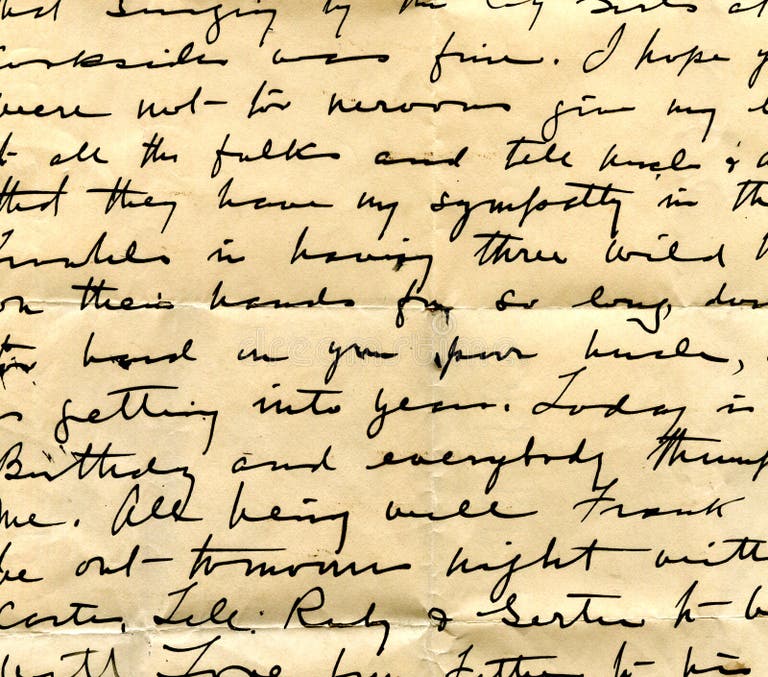 that singing by the City Girls at
was fine. I hope y
were not to nervous give my l
t all the folks and tell uncle & a
that they have my sympathy in the
troubles in having three wild
on their hands for so long, don
to hard on you poor uncle,
is getting into years. Today is
Birthday and everybody thump
me. All being well Frank
be out tomorrow night with
Carter. Tell Ruby & Gertie to b
Love from Father to his